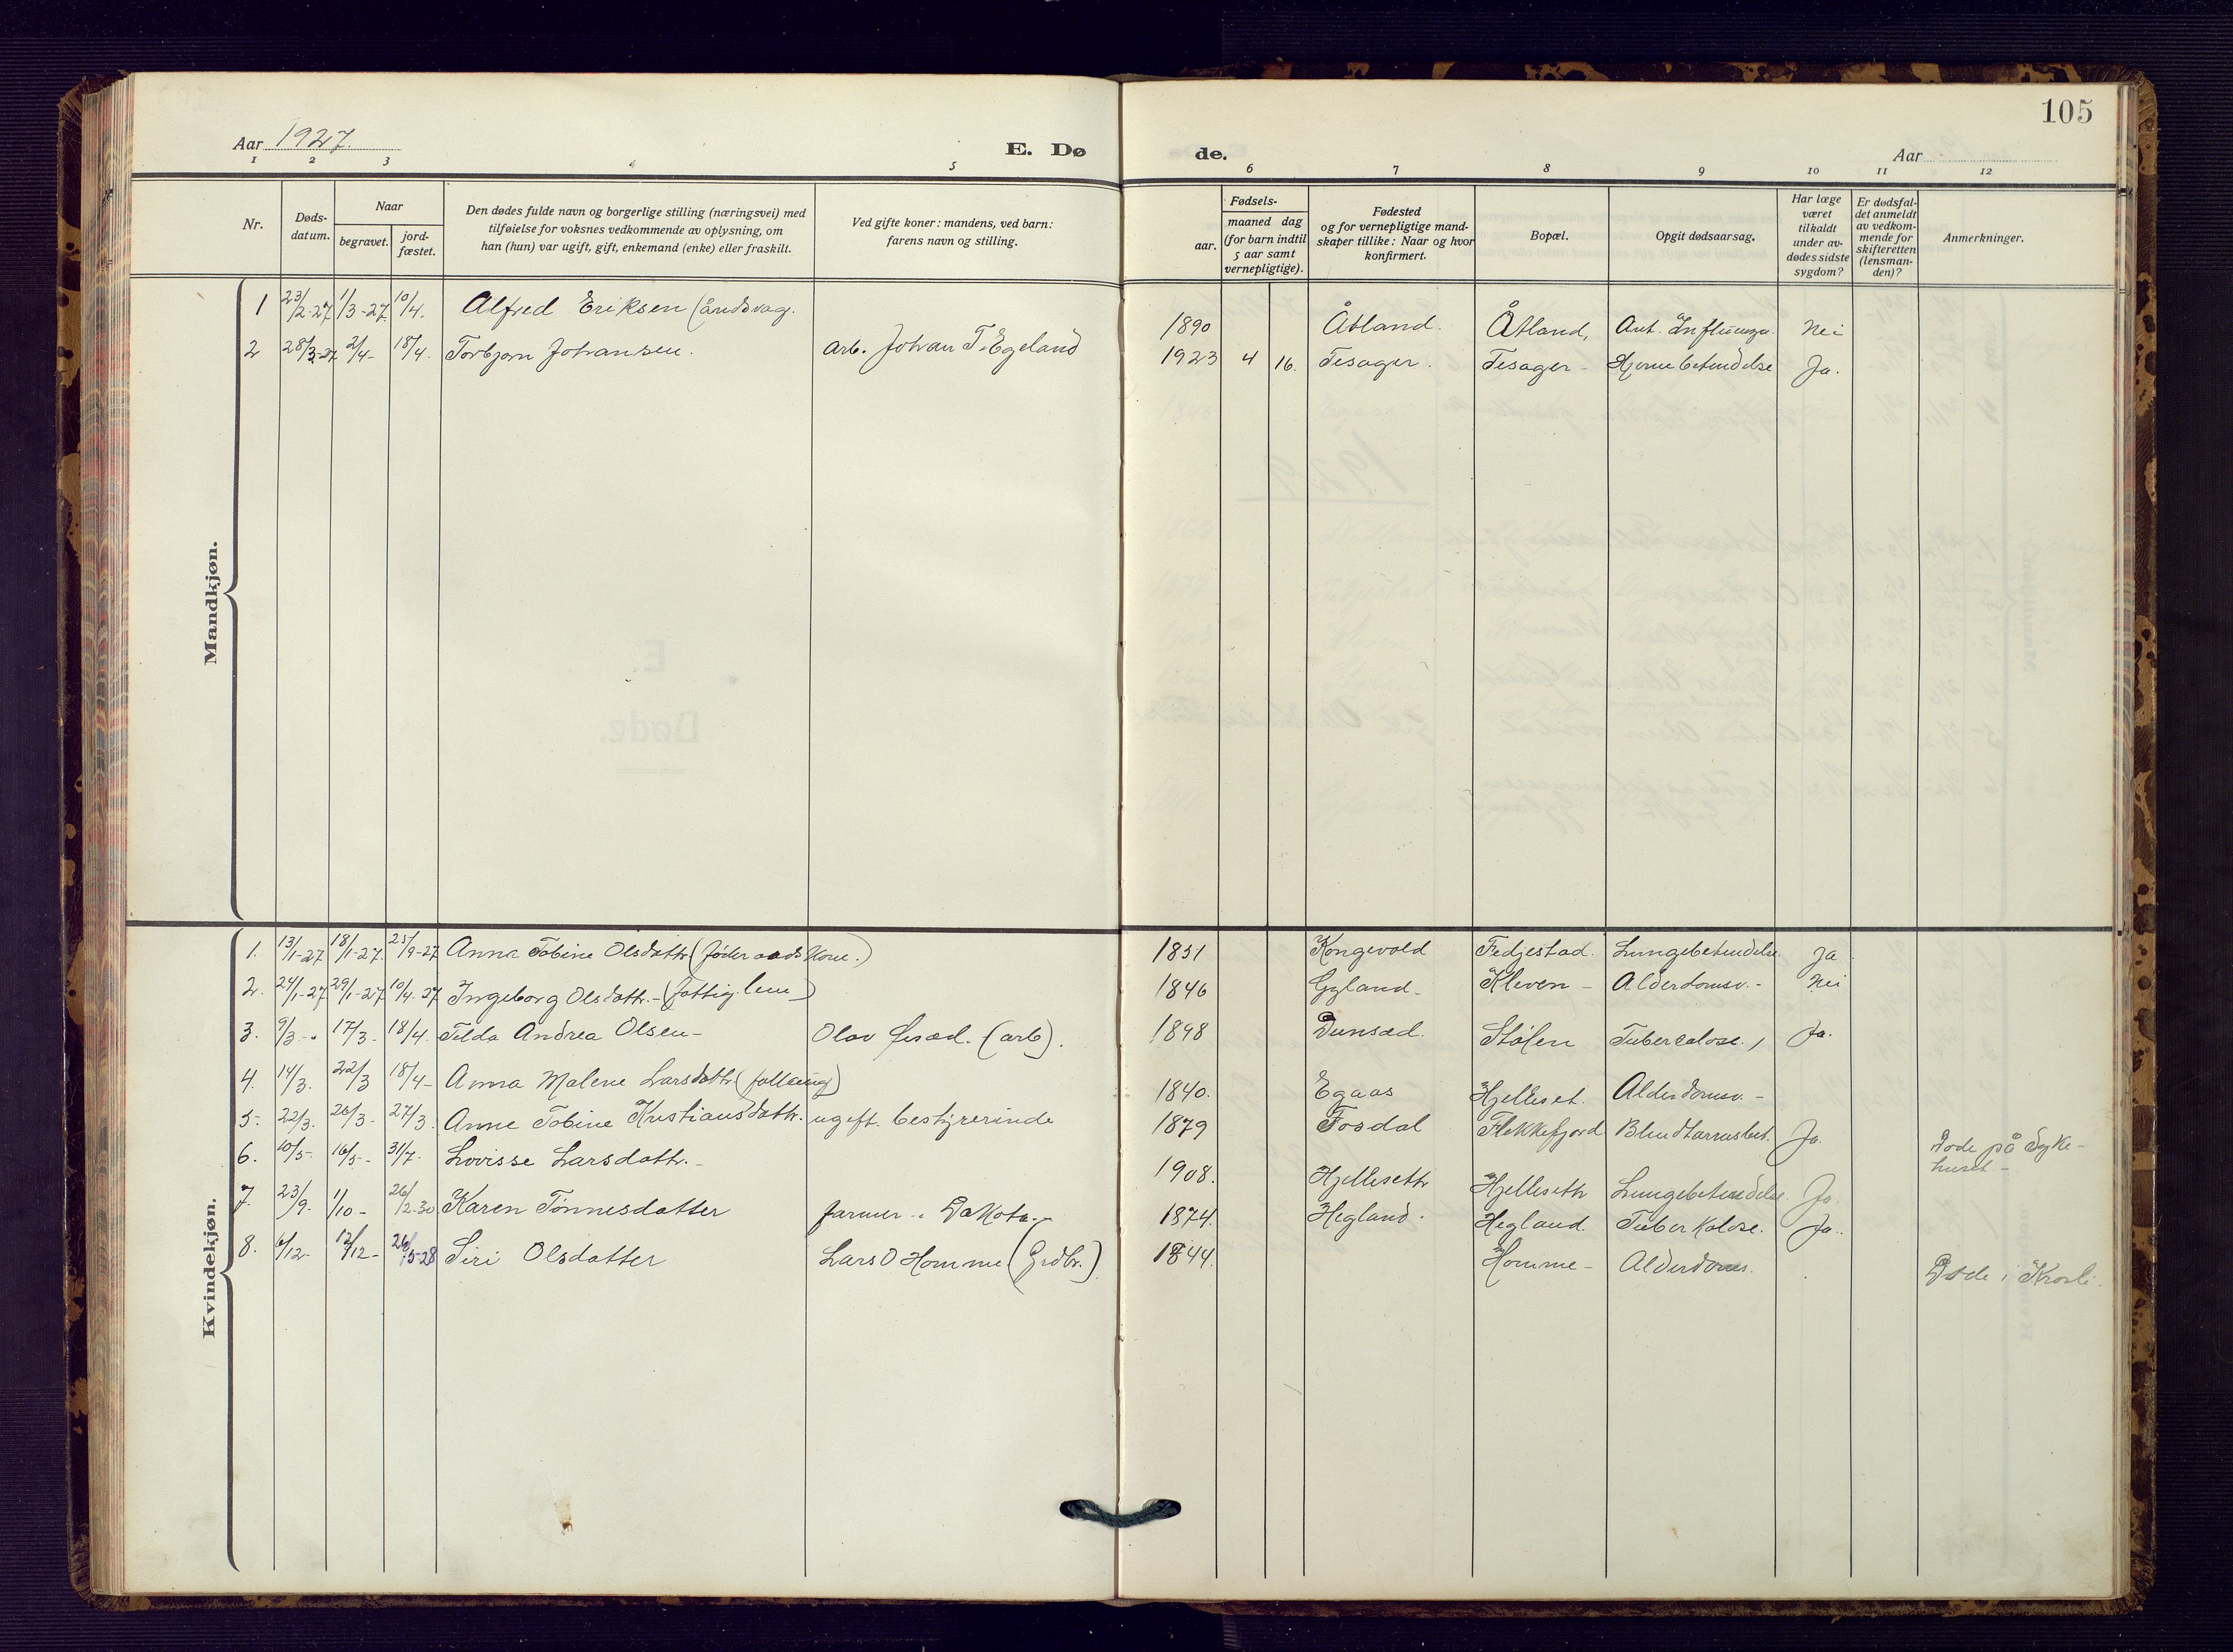 105
Aar 1927.
E. Dø
de.
Aar
1 2 3 4 5 6 7 8 9 10 11 12
Nr.
Døds-
datum.
Naar
begravet.
jord-
fæstet.
Den dødes fulde navn og borgerlige stilling (næringsvei) med
tilføielse for voksnes vedkommende av oplysning, om
han (hun) var ugift, gift, enkemand (enke) eller fraskilt.
Ved gifte koner: mandens, ved barn:
farens navn og stilling.
Fødsels-
aar.
maaned dag
(for barn indtil
5 aar samt
vernepligtige).
Fødested
og for vernepligtige mand-
skaper tillike: Naar og hvor
konfirmert.
Bopæl.
Opgit dødsaarsag.
Har læge
været
tilkaldt
under av-
dødes sidste
sygdom?
Er dødsfal-
det anmeldt
av vedkom-
mende for
skifteretten
(lensman-
den)?
Anmerkninger.
Mandkjøn.
1 23/2-27 1/3-27. 10/4. Alfred Eriksen (åndsvag. 1890 Åtland. Åtland, Ant. Influenza. Nei
2 28/3-27 2/4- 18/4. Torbjørn Johansen. Arb. Johan T. Egeland 1923 4 16. Tesager. Tesager- Hjernebetendelse Ja.
Kvindekjøn.
1. 13/1-27 18/1-27. 25/9-27 Anna Tobine Olsdottr (føderaadskone.) 1851 Kongevold Fedjestad. Lungebetendelse. Ja
2. 24/1-27 29/1-27 10/4-27 Ingeborg Olsdottr.- (fattiglem-) 1846 Gyland- Kleven- Alderdomsv.- Nei
3. 9/3-" 17/3- 18/4. Tilda Andrea Olsen- Olav (arb). 1898 Dunsæd. Stølen Tubercolose. Ja.
4. 14/3. 22/3 18/4- Anna Malene Larsdottr 1840. Egaas Hjelleset. Alderdomsv.-
5- 22/3. 26/3- 27/3. Anne Tobine Kristiansdottr. ugift. bestyrerinde 1879 Fosdal Flekkefjord Blindtarmsbet. Ja. Døde på Syke-
huset-
6. 10/5- 16/5- 31/7- Lovisse Larsdottr.- 1908. Hjellesettr Hjellesettr Lungebetendelse. Ja
7. 23/9- 1/10- 26/2-30 Karen Tønnesdotter farmer i Dakota.- 1874. Hegland. Hegland. Tuberkolose. Ja.
8. 6/12- 12/12- 26/5-28 Siri Olsdatter Lars O Homme (Grdbr.) 1844. Homme- Alderdoms. Døde i Krosli.